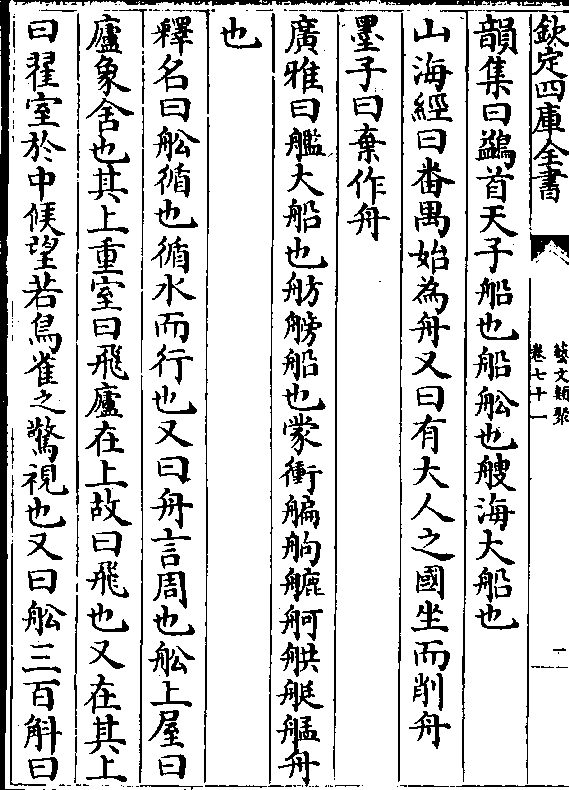 欽定四庫全書
藝文類聚
卷七十一
二
韻集曰鷁首天子船也船舩也艘海大船也
山海經曰番禺始為舟又曰有大人之國坐而削舟
墨子曰棄作舟
廣雅曰艦大船也舫艕船也蒙衝艑䑦䑾舸䑪艇艋舟
也
釋名曰舩循也循水而行也又曰舟言周也舩上屋曰
廬象舍也其上重室曰飛廬在上故曰飛也又在其上
曰翟室於中候望若鳥雀之驚視也又曰舩三百斛曰